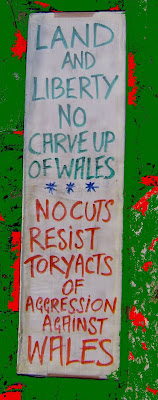 LAND
AND
LIBERTY
NO
CARVE UP
OF WALES
* * *
NO CUTS
RESIST
TORY ACTS
OF
AGGRESSION
AGAINST
WALES